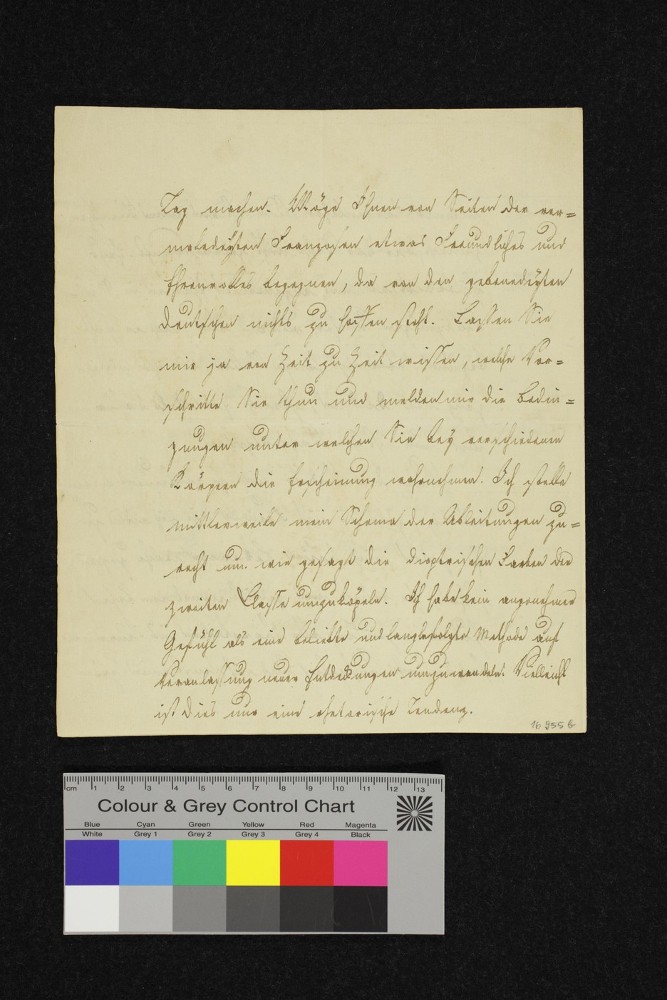 Tag machen. Möge Ihnen von Seiten der ver=
maledeyten Franzosen etwas Freundliches und
Ehrenvolles begegnen, da von den gebenedeyten
Deutschen nichts zu hoffen steht. Lassen Sie
mir ja von Zeit zu Zeit wissen, welche Vor=
schritte Sie thun und melden mir die Bedin=
gungen unter welchen Sie bey verschiedenen
Körpern die Erscheinung wahrnehmen. Ich stelle
mittlerweile mein Schema der Ableitungen zu=
recht um wie gesagt die dioptrischen Farben der
zweiten Classe umzuköpeln. Ich habe kein angenehmer
Gefühl als eine beliebte und langbefolgte Methode auf
Veranlassung neuer Entdeckungen umzuwandeln. Vielleicht
ist dies nur eine rhetorische Tendenz.
16 955 b
cm 1 2 3 4 5 6 7 8 9 10 11 12 13
Colour & Grey Control Chart
Blue Cyan Green Yellow Red Magenta
White Grey 1 Grey 2 Grey 3 Grey 4 Black